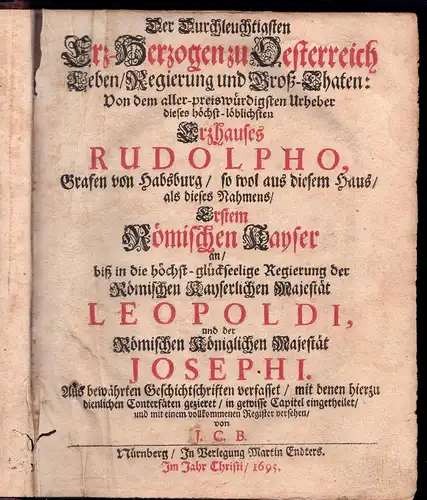 Der Durchleuchtigsten
Erz-Herzogen zu Oesterreich
Leben/Regierung und Groß-Thaten:
Von dem aller-preiswürdigsten Urheber
dieses höchst-löblichsten
Erzhauses
RUDOLPHO,
Grafen von Habsburg / so wol aus diesem Haus/
als dieses Nahmens/
Erstem
Römischen Kayser
an/
biß in die höchst-glückseelige Regierung der
Römischen Kayserlichen Majestät
LEOPOLDI,
und der
Römischen Königlichen Majestät
JOSEPHI.
Aus bewährten Geschichtschriften verfasset / mit denen hierzu
dienlichen Conterfäten gezieret / in gewisse Capitel eingetheilet/
und mit einem vollkommenen Register versehen/
von
J. C. B.
Nürnberg / In Verlegung Martin Endters.
Im Jahr Christi / 1695.